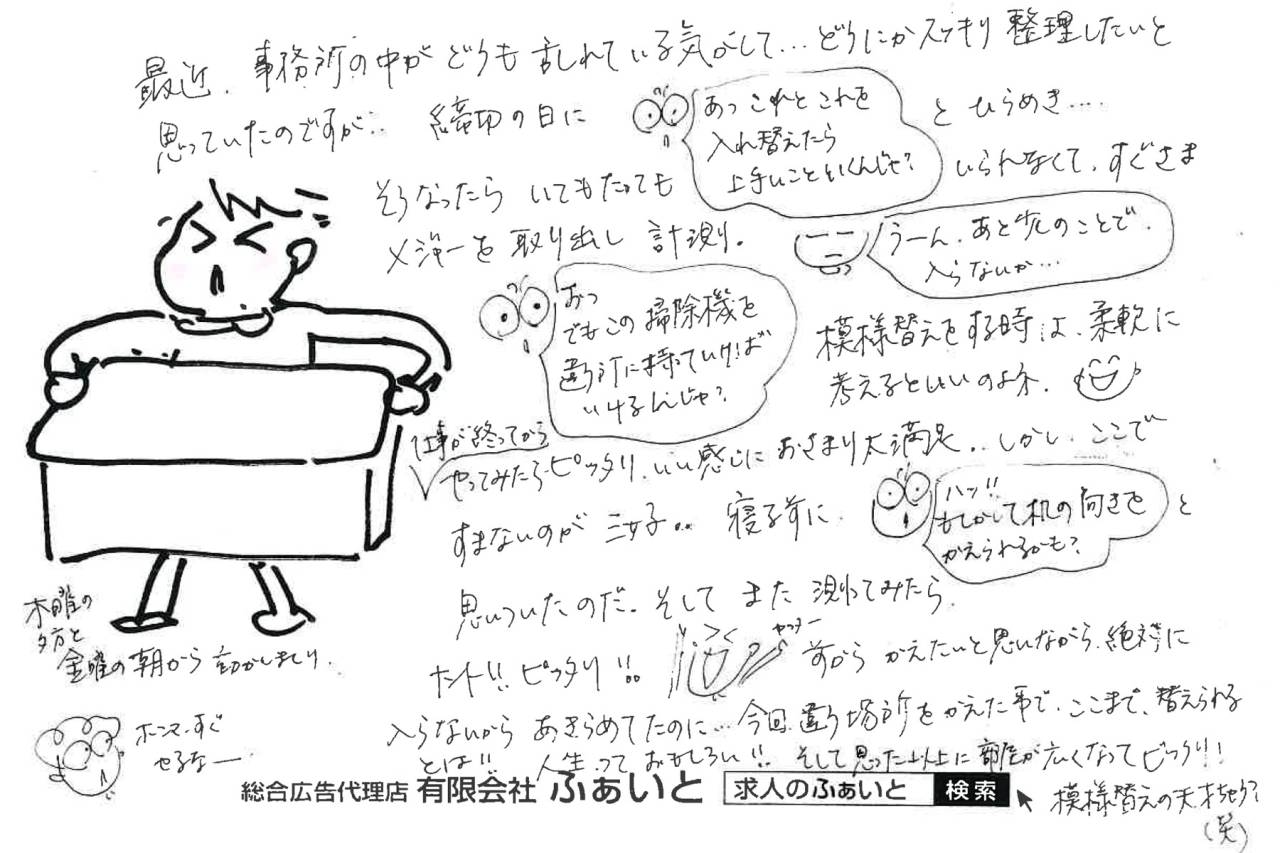 最近、事務所の中がどうも乱れている気がして…どうにかスッキリ整理したいと
思っていたのですが… 締切の日に
あっ これとこれを
入れ替えたら
上手いこといくんじゃ?
とひらめき….
そうなったら いてもたっても
いられなくて、すぐさま
メジャーを取り出し 計測。
うーん、あと少しのことで、
入らないか…
おっ
でもこの掃除機を
違う所に持っていけば
いけるんじゃ?
模様替えをする時は、柔軟に
考えるといいのよネ、
仕事が終ってから
やってみたらピッタリ、いい感じにおさまり大満足.. しかし、ここで
すまないのが 三女子.. 寝る前に、
ハッ!!
もしかして机の向きを
かえられるかも?
と
思いついたのだ。そして また 測ってみたら、
ナント!! ピッタリ!!
ヤッター
前から かえたいと思いながら、絶対に
入らないから あきらめてたのに…今回、違う場所をかえた事で、ここまで、替えられる
とは!! 人生っておもしろい!! そして思った以上に部屋が広くなってビックリ!!
模様替えの天才ちゃう?
(笑)
木曜の
夕方と
金曜の朝から 動かしまくり、
ホンマ、すぐ
やるなー
総合広告代理店 有限会社 ふぁいと 求人のふぁいと 検索